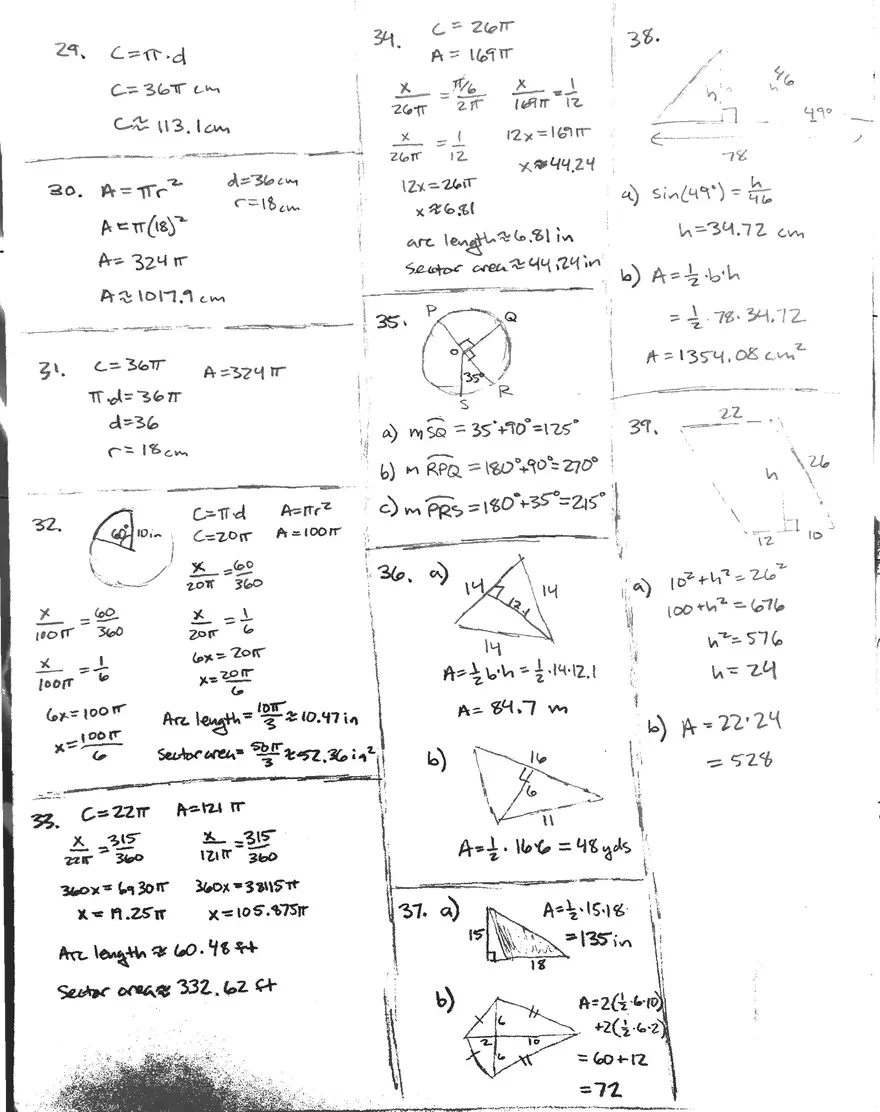 29. C=π·d
C=36π cm
C≈113.1cm
30. A=πr² d=36cm
r=18cm
A=π(18)²
A=324π
A≈1017.9cm
31. C=36π A=324π
π·d=36π
d=36
r=18cm
32. 60° 10in C=π·d A=πr²
C=20π A=100π
x/20π = 60/360
x/100π = 60/360 x/20π = 1/6
x/100π = 1/6 6x=20π
x=20π/6
6x=100π Arc length = 10π/3 ≈10.47in
x=100π/6 Sector area= 50π/3 ≈52.36in²
33. C=22π A=121π
x/22π = 315/360 x/121π = 315/360
360x=6930π 360x=38115π
x=19.25π x=105.875π
Arc length ≈ 60.48 ft
Sector area≈ 332.62 ft
34. C=26π
A=169π
x/26π = π/6/2π x/169π = 1/12
x/26π = 1/12 12x=169π
x≈44.24
12x=26π
x≈6.81
arc length≈6.81in
sector area≈44.24in
35. P Q
O
35°
S R
a) mSQ = 35°+90°=125°
b) m RPQ =180°+90°=270°
c) m PRS =180°+35°=215°
36. a) 14 12.1 14
14
A=½b·h=½·14·12.1
A= 84.7 m
b) 16
6
11
A=½·16·6=48yds
37. a) 15 A=½·15·18
18 =135in
b) 6 A=2(½·6·10)
2 10 +2(½·6·2)
6 =60+12
=72
38.
h 46 49°
78
a) sin(49°)=h/46
h=34.72 cm
b) A=½·b·h
=½·78·34.72
A=1354.08cm²
39. 22
h 26
12 10
a) 10²+h²=26²
100+h²=676
h²=576
h=24
b) A=22·24
=528